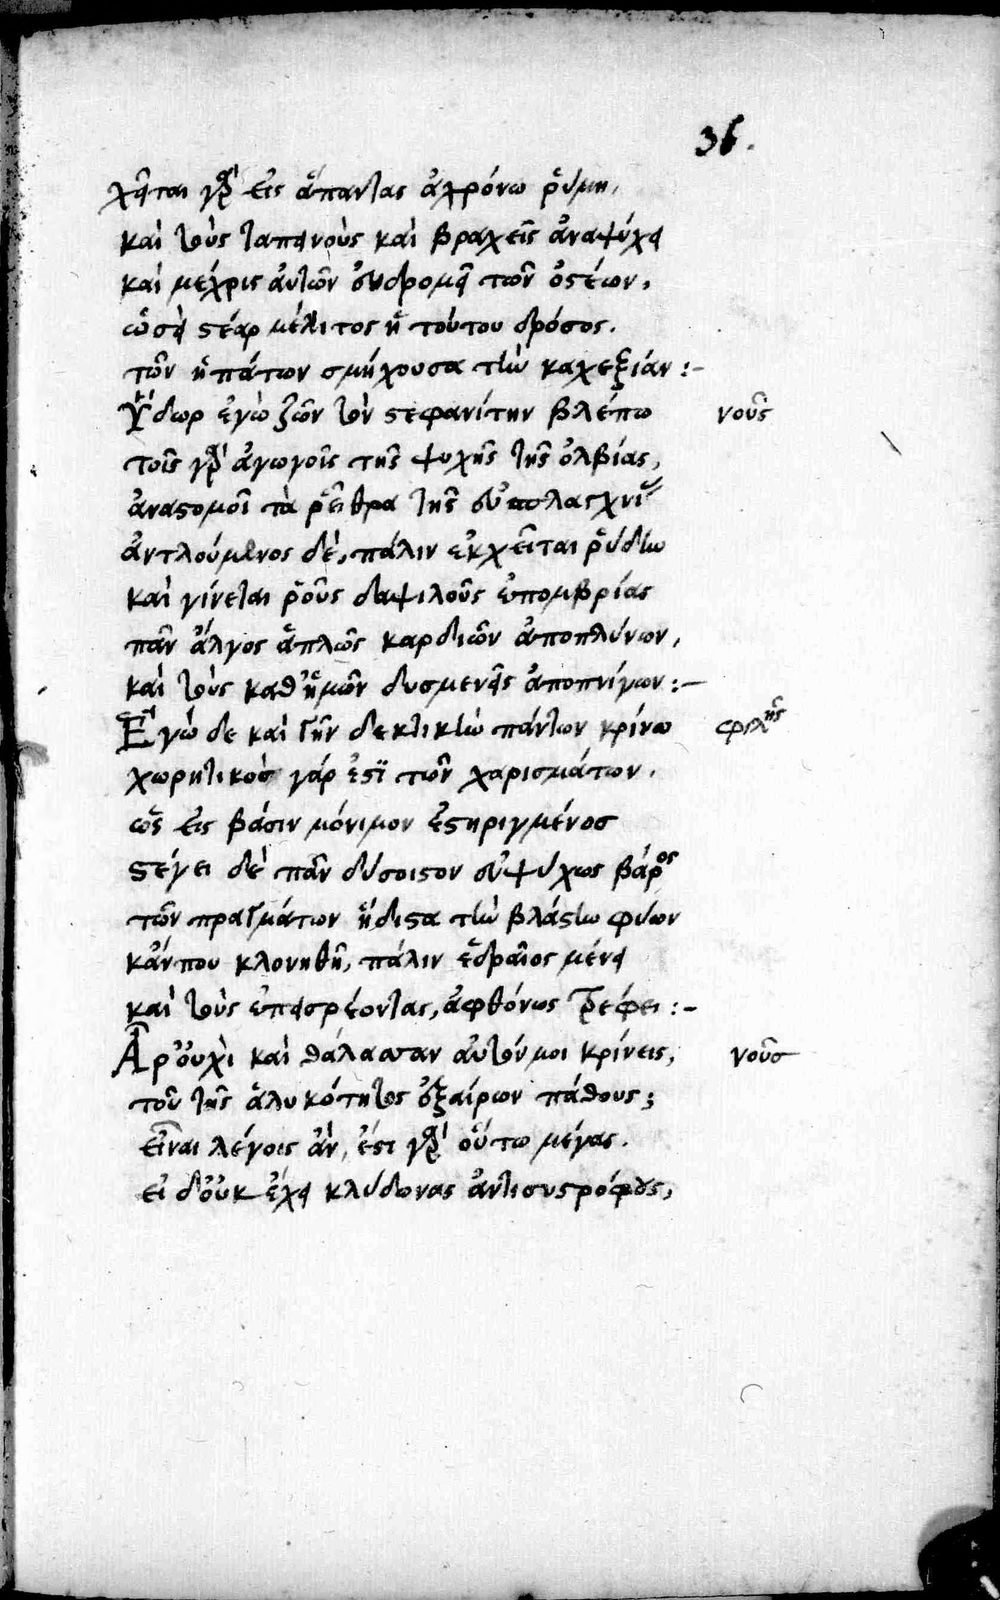 36.
χεῖται γὰρ εἰς ἅπαντας ἀχρόνω ῥύμη,
καὶ τοὺς ταπεινοὺς καὶ βραχεῖς ἀναψύχει
καὶ μέχρις αὐτῶν εἰσδρομεῖ τῶν ὀστέων,
ὡσεὶ στέαρ μέλιτος ἡ τούτου δρόσος.
τῶν ἡπάτων σμήχουσα τὴν καχεξίαν :-
Ὕδωρ ἐγὼ ζῶν τὸν στεφανίτην βλέπω νοῦς
τοῖς γὰρ ἀγωγοῖς τῆς ψυχῆς τῆς ὀλβίας,
ἀναστομοῖ τὰ ῥεῖθρα τῆς εὐσπλαγχνίας
ἀντλούμενος δὲ, πάλιν ἐκχεῖται ῥύδην
καὶ γίνεται ῥοῦς δαψιλοῦς ἐπομβρίας
πᾶν ἄλγος ἁπλῶς καρδιῶν ἀποπλύνων,
καὶ τοὺς καθ' ἡμῶν δυσμενεῖς ἀποπνίγων :-
Ἐγὼ δε καὶ γῆν δεκτικὴν πάντων κρίνω φιλῆς
χωρητικὸς γάρ ἐστὶ τῶν χαρισμάτων.
ὡς εἰς βάσιν μόνιμον ἐστηριγμένος
στέγει δὲ πᾶν δύσοιστον εὐψύχως βάρος
τῶν πραγμάτων ἥδιστα τὴν βλάστην φύων
κἄν που κλονηθῆ, πάλιν ἑδραῖος μένει
καὶ τοὺς ἐπεισρέοντας, ἀφθόνως τρέφει :-
Ἆρ' οὐχὶ καὶ θάλασσαν αὐτόν μοι κρίνεις, νοῦς
τὸν τῆς ἁλυκότητος ἐξαίρων πάθους;
εἶναι λέγοις ἂν, ἔστι γὰρ οὕτω μέγας.
εἰ δ' οὐκ ἔχει κλύδωνας ἀντισυστρόφους,